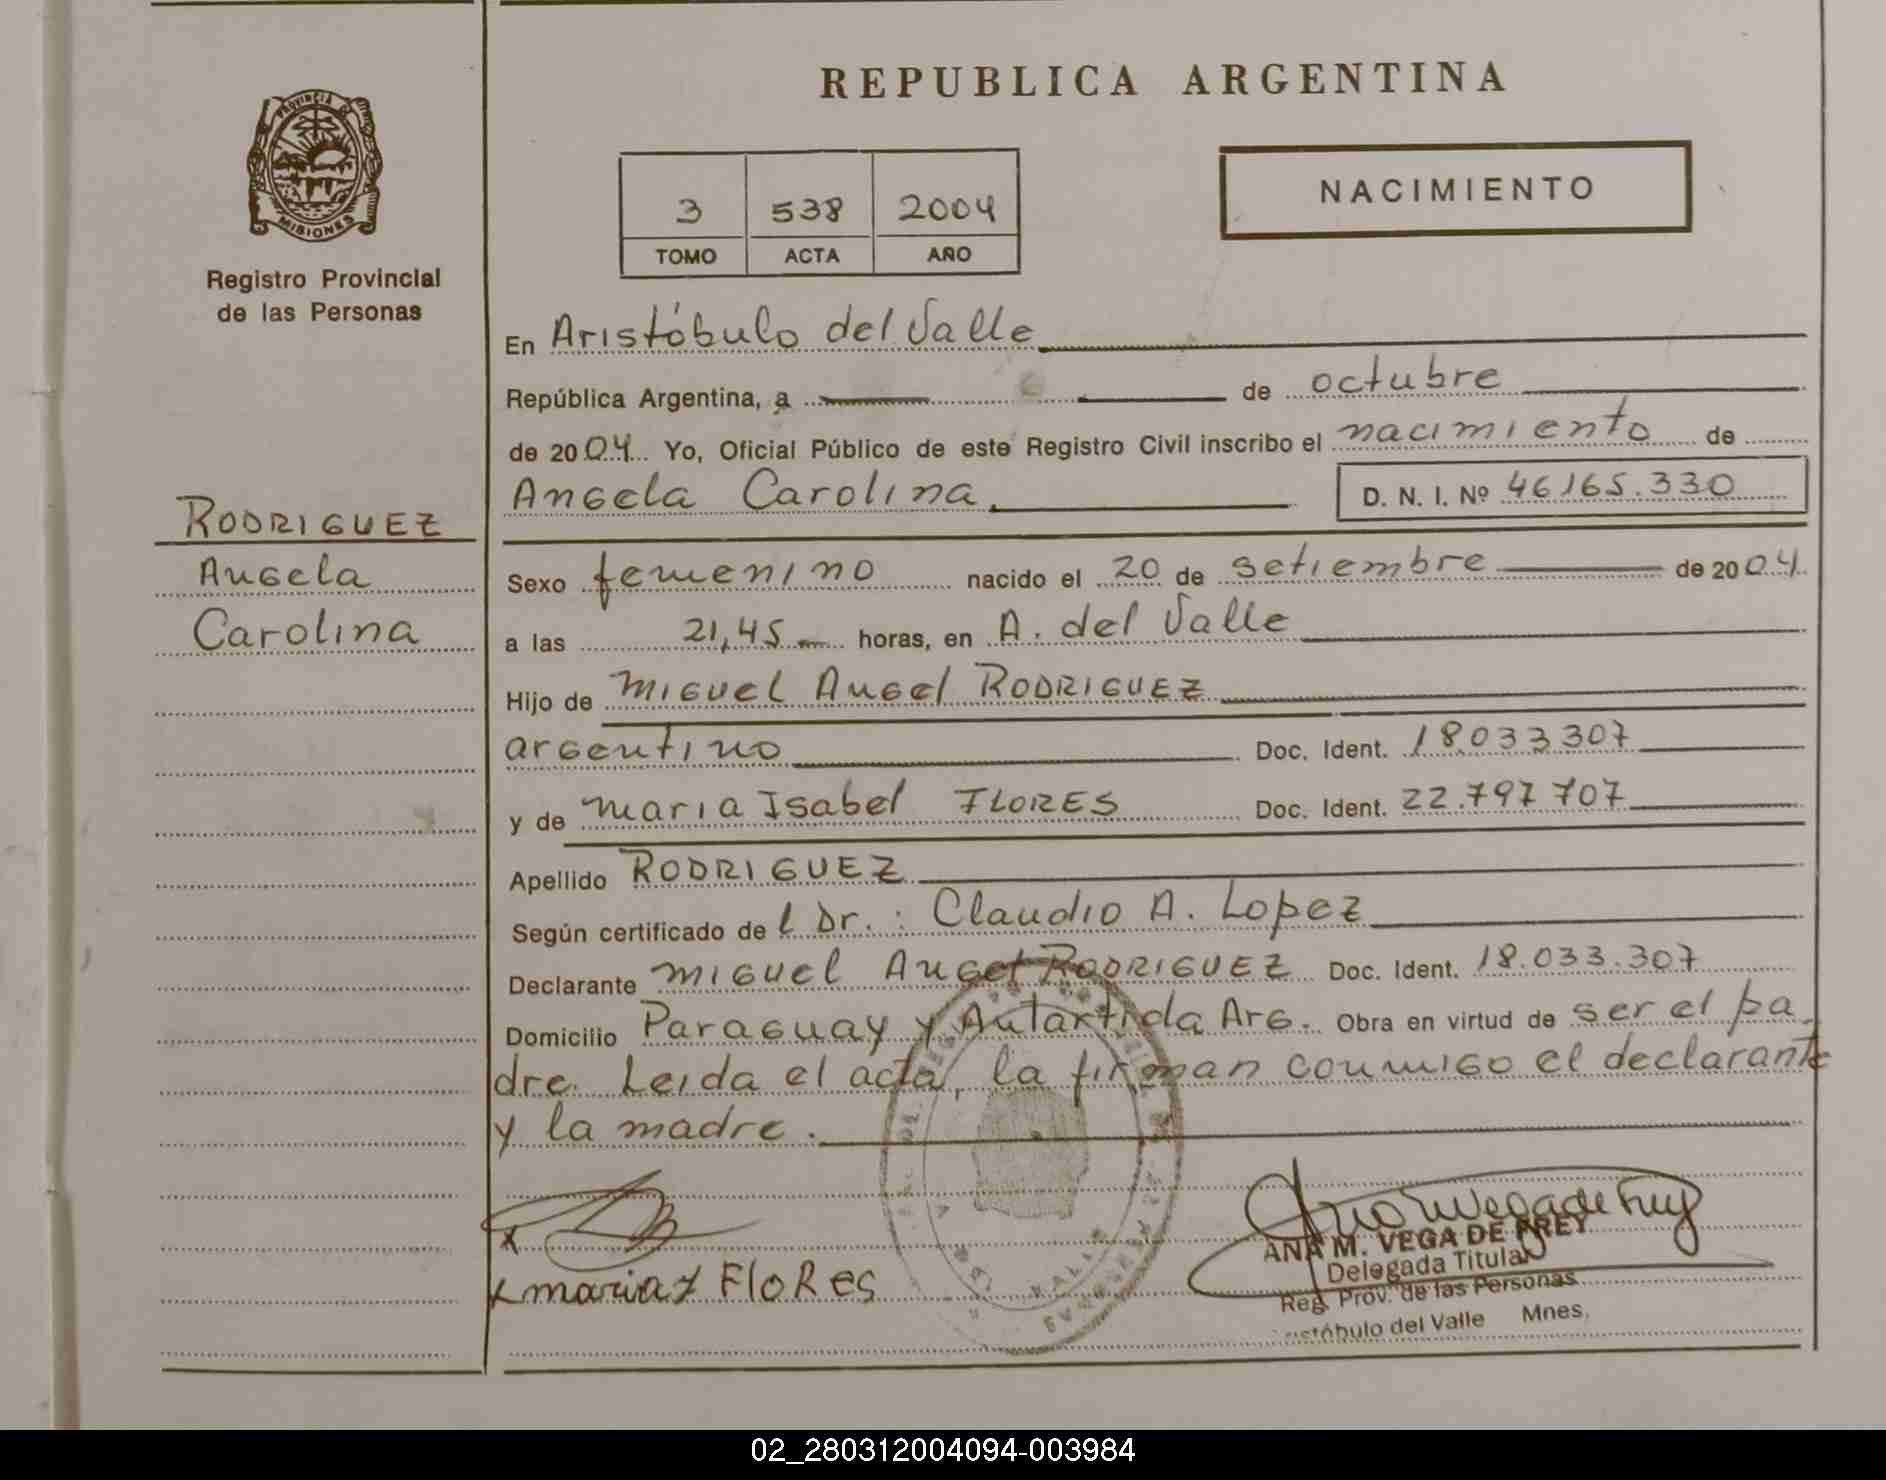 REPUBLICA ARGENTINA
PROVINCIA DE
MISIONES
Registro Provincial
de las Personas
3 538 2004
TOMO ACTA AÑO
NACIMIENTO
RODRIGUEZ
Angela
Carolina
En Aristóbulo del Valle
República Argentina, a 6 de octubre
de 2004. Yo, Oficial Público de este Registro Civil inscribo el nacimiento de
Angela Carolina D. N. I. Nº 46165.330
Sexo femenino nacido el 20 de setiembre de 2004.
a las 21,45 horas, en A. del Valle
Hijo de Miguel Angel RODRIGUEZ
argentino Doc. Ident. 18033307
y de maria Isabel FLORES Doc. Ident. 22.797707
Apellido RODRIGUEZ
Según certificado de l Dr. : Claudio A. Lopez
Declarante miguel Angel RODRIGUEZ Doc. Ident. 18.033.307
Domicilio Paraguay y Antartida Arg. Obra en virtud de ser el pa
dre. Leida el acta, la firman conmigo el declarante
y la madre.
x
x maria I FloRes
Ana M Vega de Frey
ANA M. VEGA DE FREY
Delegada Titular
Reg. Prov. de las Personas
istóbulo del Valle Mnes.
02_280312004094-003984